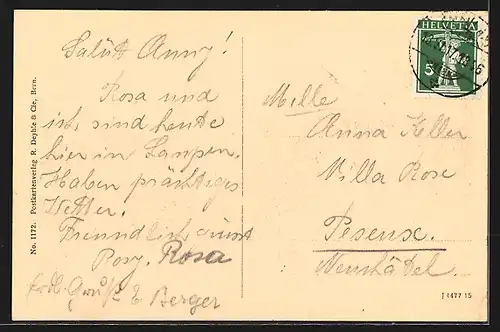 Salütt Anny!
Rosa und
ist, sind heute
hier in Laupen.
Haben prächtiges
Wetter.
Freundlich grüsst
Rosy. Rosa
Gruß E Berger
HELVETIA
5
Mlle
Anna Keller
Villa Rose
Peseux.
Neuchâtel.
No. 1172. Postkartenverlag R. Deyhle & Cie, Bern.
J 4477 15